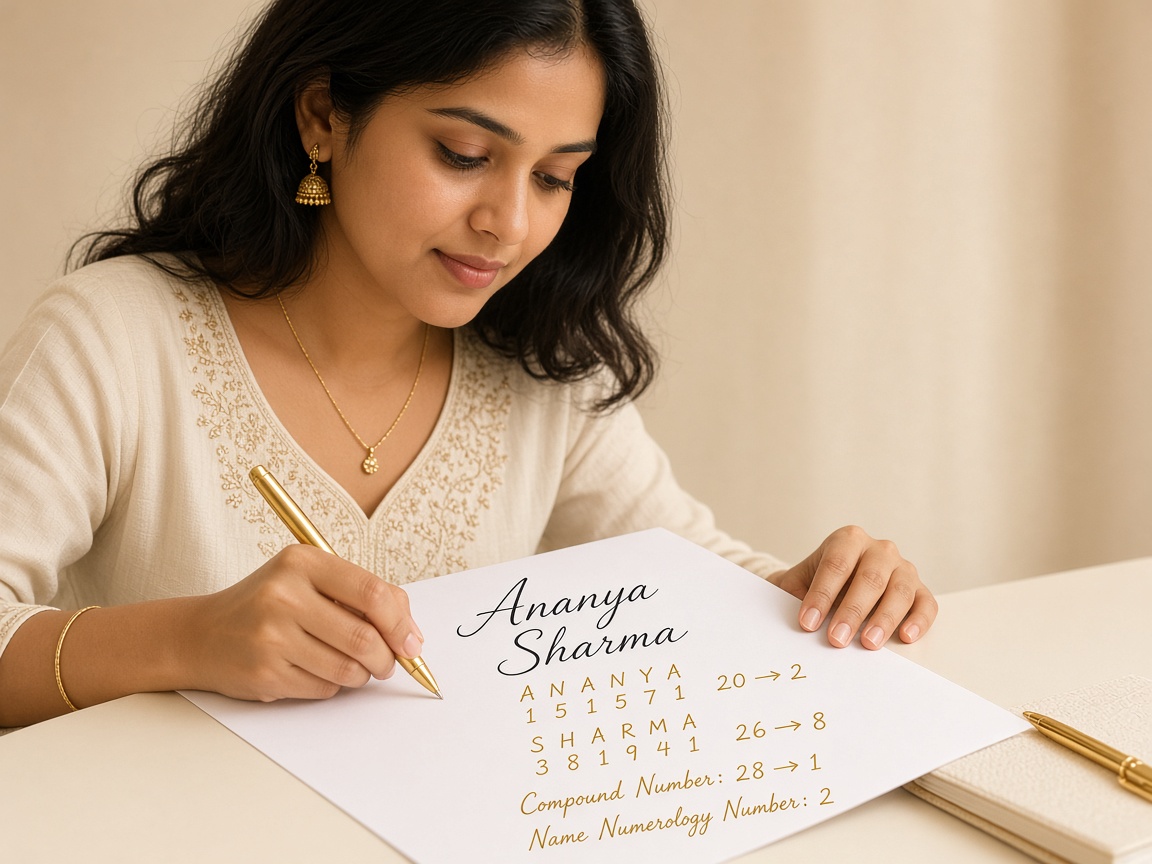 Ananya
Sharma
A N A N Y A
1 5 1 5 7 1 20 → 2
S H A R M A
3 8 1 9 4 1 26 → 8
Compound Number: 28 → 1
Name Numerology Number: 2